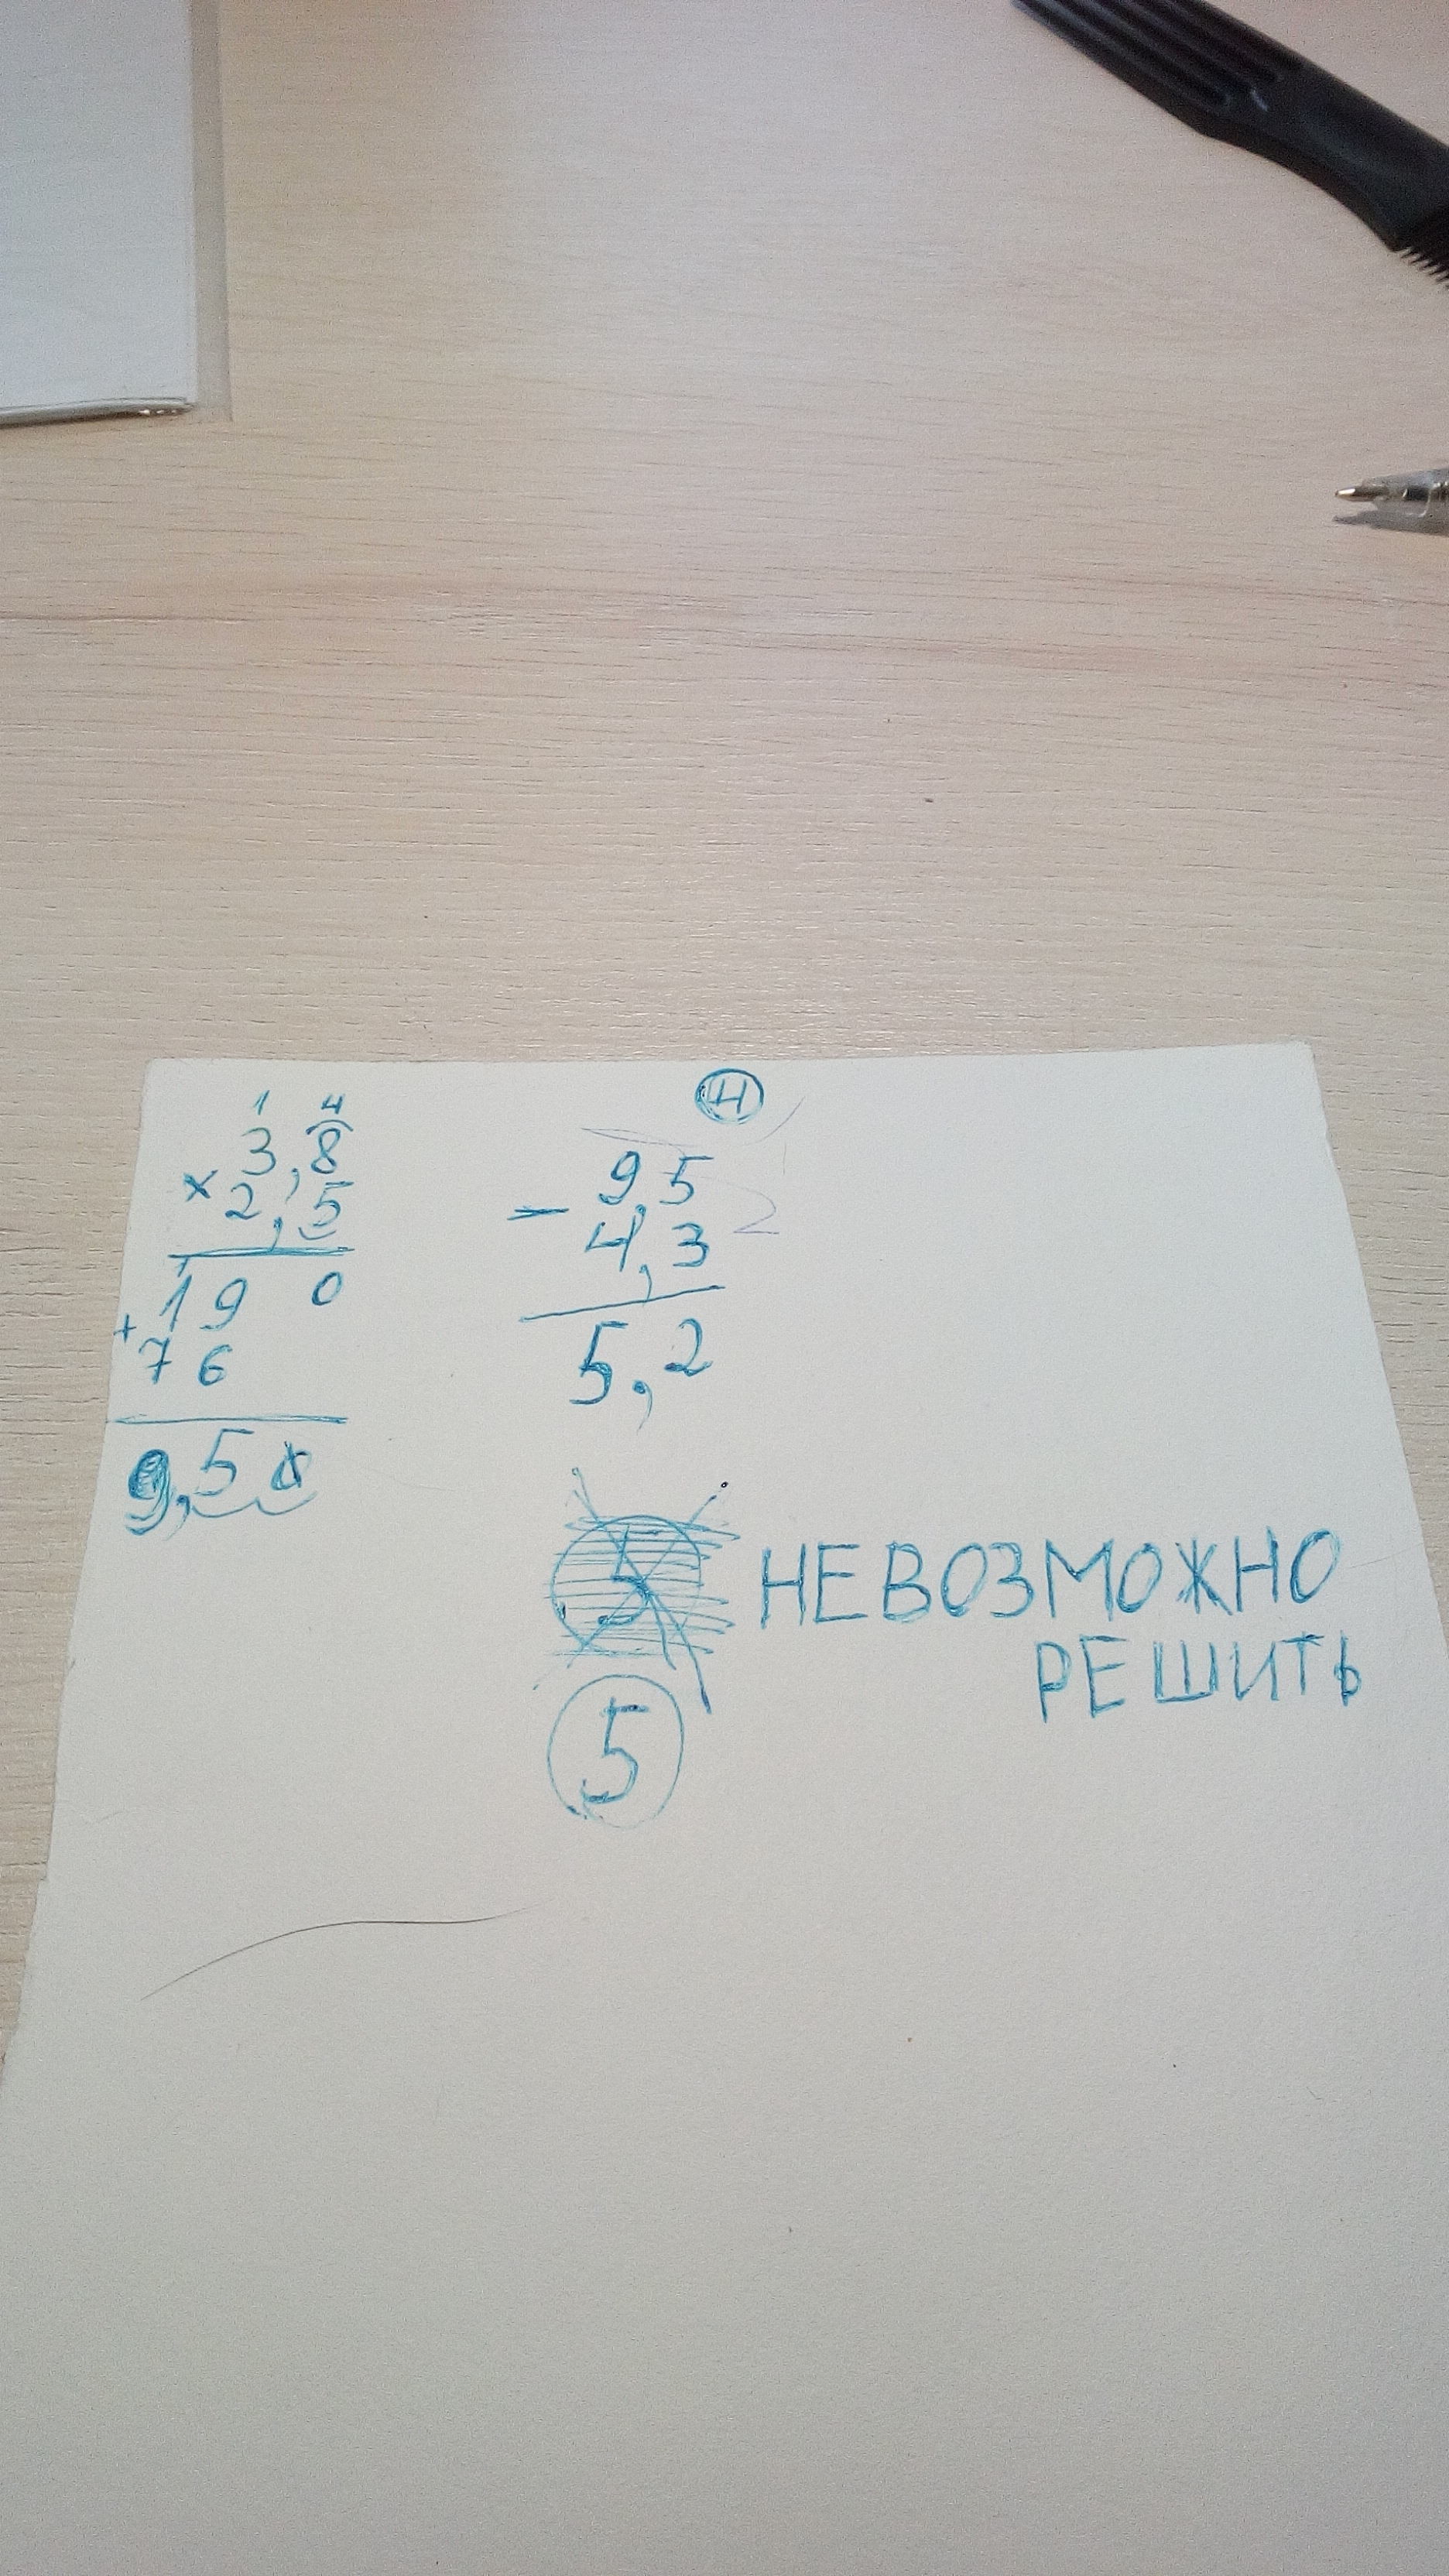 1 4
3,8
× 2,5
190
+ 76
9,50
4
9,5
− 4,3 2
5,2
5 НЕВОЗМОЖНО
РЕШИТЬ
5